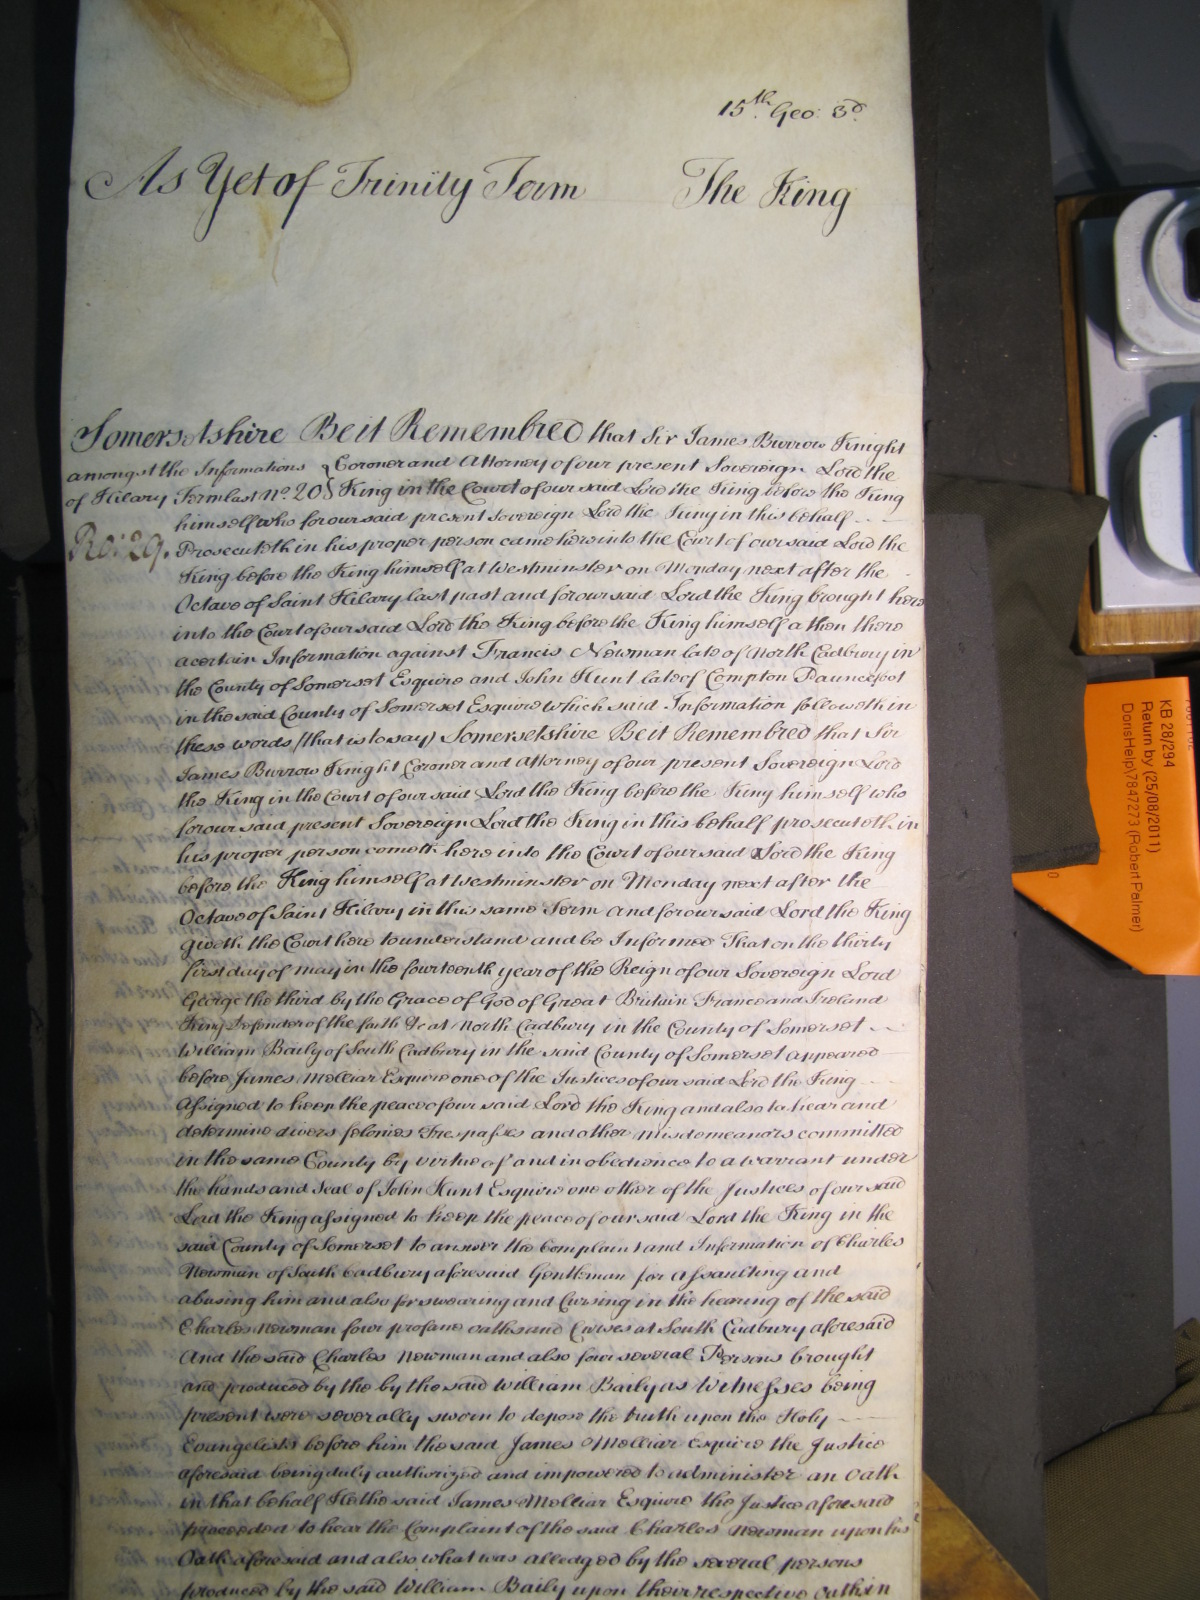 15th. Geo: 3d.
As Yet of Trinity Term The King
Somersetshire Be it Remembred that Sir James Burrow Knight
amongst the Informations { Coroner and Attorney of our present Sovereign Lord the
of Hilary Term last no. 20 { King in the Court of our said Lord the King before the King
himself who for our said present Sovereign Lord the King in this behalf
Ro: 29. Prosecuteth in his proper person came here into the Court of our said Lord the
King before the King himself at Westminster on Monday next after the
Octave of Saint Hilary last past and for our said Lord the King brought here
into the Court of our said Lord the King before the King himself a then there
a certain Information against Francis Newman late of North Cadbury in
the County of Somerset Esquire and John Hunt late of Compton Pauncefoot
in the said County of Somerset Esquire which said Information followeth in
these words (that is to say) Somersetshire Be it Remembred that Sir
James Burrow Knight Coroner and Attorney of our present Sovereign Lord
the King in the Court of our said Lord the King before the King himself who
for our said present Sovereign Lord the King in this behalf prosecuteth in
his proper person cometh here into the Court of our said Lord the King
before the King himself at Westminster on Monday next after the
Octave of Saint Hilary in this same Term and for our said Lord the King
giveth the Court here to understand and be Informed That on the thirty
first day of may in the fourteenth year of the Reign of our Sovereign Lord
George the third by the Grace of God of Great Britain France and Ireland
King Defender of the faith &c at North Cadbury in the County of Somerset
William Baily of South Cadbury in the said County of Somerset appeared
before James Melliar Esquire one of the Justices of our said Lord the King
Assigned to keep the peace of our said Lord the King and also to hear and
determine divers felonies Trespasses and other misdemeanors committed
in the same County by virtue of and in obedience to a warrant under
the hand and Seal of John Hunt Esquire one other of the Justices of our said
Lord the King assigned to keep the peace of our said Lord the King in the
said County of Somerset to answer the Complaint and Information of Charles
Newman of South Cadbury aforesaid Gentleman for assaulting and
abusing him and also for swearing and Cursing in the hearing of the said
Charles Newman four profane oaths and Curses at South Cadbury aforesaid
And the said Charles Newman and also four several Persons brought
and produced by the by the said William Baily as Witnesses being
present were severally sworn to depose the truth upon the Holy
Evangelists before him the said James Melliar Esquire the Justice
aforesaid being duly authorized and impowered to administer an Oath
in that behalf He the said James Melliar Esquire the Justice aforesaid
proceeded to hear the Complaint of the said Charles Newman upon his
Oath aforesaid and also what was alledged by the several persons
produced by the said William Baily upon their respective oaths in
KB 28/294
Return by (25/08/2011)
DorisHelp\7847273 (Robert Palmer)